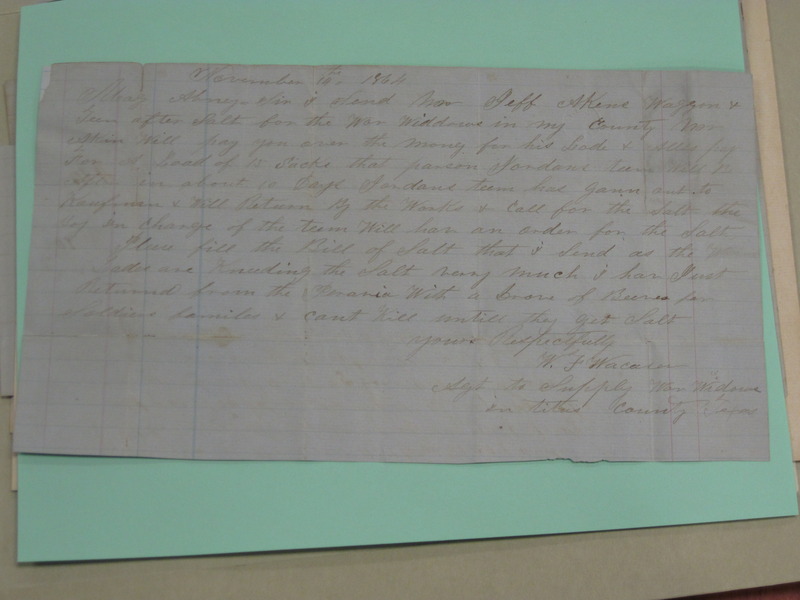 November 16th. 1864
Abney Sir I Send Mr Jeff Akens Waggon &
Teem after Salt for the War Widdows in my County Mr
Akin Will pay you over the money for his Lode & Allso pay
For A Load of 15 Sacks that parson Jordans teem Will
after in about 10 Days Jordans teem has gonn out to
Kaufman & Will Return By the Works & Call for the Salt the
boy in charge of the team Will hav an order for the Salt
Please fill the Bill of Salt that I send as the
Ladies are Kneeding the Salt very much I hav Just
Returnd from the Praria With a Drove of Beeves for
Soldiers familes & cant Kill untill they get Salt
yours Respectfully
W. F
Agt to Supply War Widows
in titus County Texas